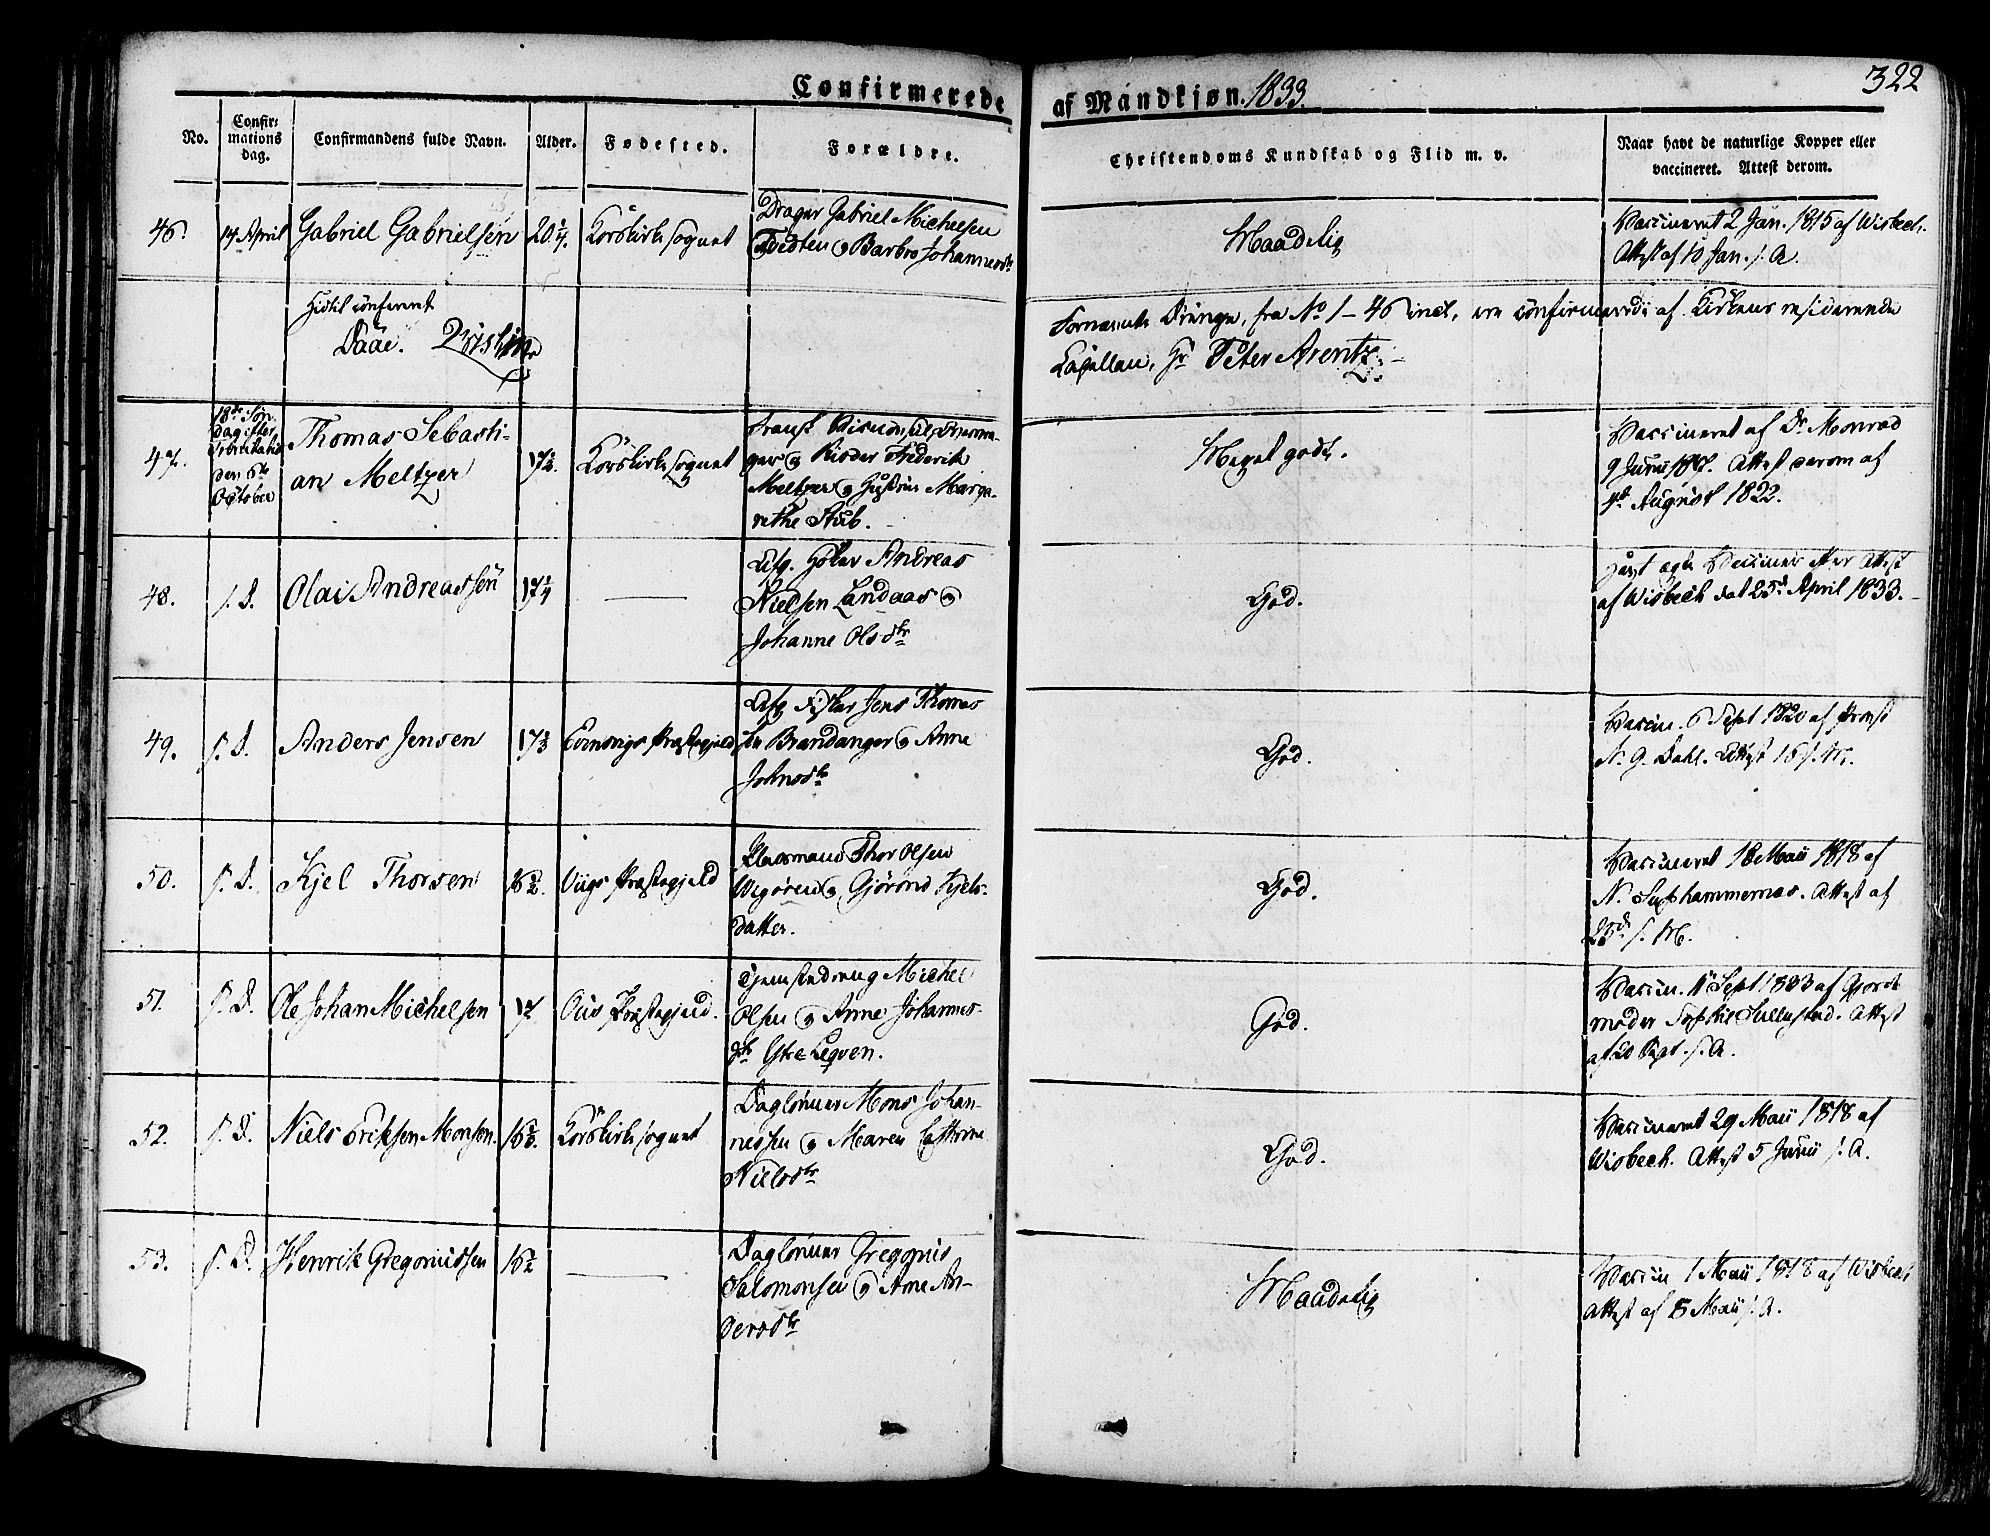 Confirmerede af Mandkjøn. 1833.
322
No.
Confir-
mations
dag.
Confirmandens fulde Navn.
Alder.
Fødested.
Forældre.
Christendoms Kundskab og Flid m. v.
Naar havt de naturlige Kopper eller
vaccineret. Attest derom.
46.
14 April
Gabriel Gabrielsen
20
Korskirkesognet
Drager Gabriel Michelsen
Tvedten og Barbro Johannesdtr
Maadelig
Vaccineret 2 Jan. 1815 af Wisbech.
Attest af 10 Jan. s. A.
Hidtil conferert
Daae.
Fornævnte Drenge, fra No 1-46 incl, ere confirmerede af Kirkens residerende
Capellan, Hr Peter Arentz.
47.
18de Søn-
dag efter
Trinitatis
den 6te
October
Thomas Sebasti-
an Meltzer
17
Korskirkesognet
Fredrik
Meltzer og Marga-
rethe Stub.
Meget godt.
Vaccineret af Dr Monrad
9 Junii 1817. Attest derom af
4de August 1822.
48.
s. D.
Olai Andreassen
17
Afg. Andreas
Nielsen Landaas og
Johanne Olsdtr
God.
Vaccine efter Attest
af Wisbech dat 25de April 1833.
49.
s. D.
Anders Jensen
17
Evinvigs Præstegjeld
Afg Fisker Jens Thomas-
sen Brandanger og Anne
Johnsdtr
God.
Vaccin. 6 Sept 1820 af Provst
N. G. Dahl. Attest 16 s. M.
50.
s. D.
Kjel Thorsen
16
Viigs Præstegjeld
Pladsmand Thor Olsen
Wigøren og Gjørond Kjels-
datter.
God.
Vaccineret 18 Maii 1818 af
N. Hammernæs. Attest af
25de s. M.
51.
s. D.
Ole Johan Michelsen
17
Ous Præstegjeld.
Tjenstedreng Michel
Olsen og Anne Johannes-
dtr Ytre
God.
Vaccin. 11 Sept 1833 af Gjord-
moder Attest
af 20 Sept. s. A.
52.
s. D.
Niels Eriksen Monsen.
16
Korskirkesognet
Daglønner Mons Johan-
nessen og Maren Cathrine
Nielsdtr
God.
Vaccineret 29 Maii 1818 af
Wisbech. Attest 5 Junii s. A.
53.
s. D.
Henrik Gregoriussen
16
Daglønner Gregorius
Salomonsen og Anne An-
dersdtr
Maadelig
Vaccin 1 Maii 1818 af Wisbech
Attest af 8 Maii s. A.